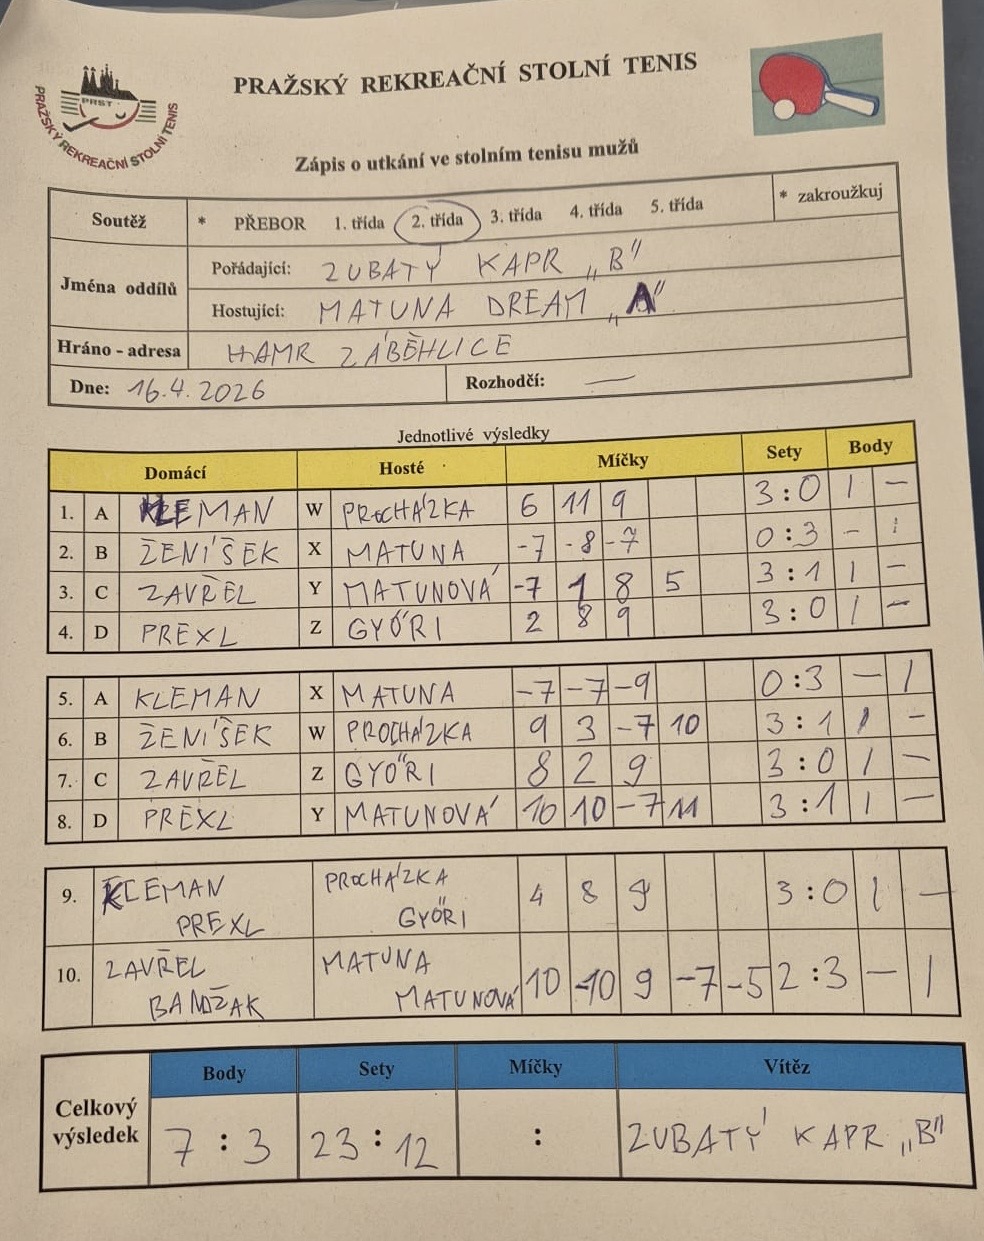 PRAŽSKÝ REKREAČNÍ STOLNÍ TENIS
PRST
PRAŽSKÝ REKREAČNÍ STOLNÍ TENIS
Zápis o utkání ve stolním tenisu mužů
Soutěž * PŘEBOR 1. třída 2. třída 3. třída 4. třída 5. třída * zakroužkuj
Jména oddílů
Pořádající: ZUBATÝ KAPR „B"
Hostující: MATUNA DREAM „A"
Hráno - adresa HAMR ZÁBĚHLICE
Dne: 16.4.2026 Rozhodčí: —
Jednotlivé výsledky
Domácí Hosté Míčky Sety Body
1. A KLEMAN W PROCHÁZKA 6 11 9 3:0 1 –
2. B ŽENÍŠEK X MATUNA -7 -8 -7 0:3 – 1
3. C ZAVŘEL Y MATUNOVÁ -7 1 8 5 3:1 1 –
4. D PREXL Z GYŐRI 2 8 9 3:0 1 –
5. A KLEMAN X MATUNA -7 -7 -9 0:3 – 1
6. B ŽENÍŠEK W PROCHÁZKA 9 3 -7 10 3:1 1 –
7. C ZAVŘEL Z GYŐRI 8 2 9 3:0 1 –
8. D PREXL Y MATUNOVÁ 10 10 -7 11 3:1 1 –
9. KLEMAN PROCHÁZKA 4 8 9 3:0 1 –
PREXL GYŐRI
10. ZAVŘEL MATUNA 10 -10 9 -7 -5 2:3 – 1
BANDŽAK MATUNOVÁ
Body Sety Míčky Vítěz
Celkový výsledek 7:3 23:12 : ZUBATÝ KAPR „B"